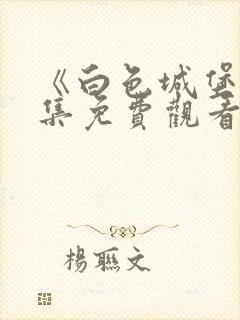 《白色城堡
集免費觀看
楊聯文